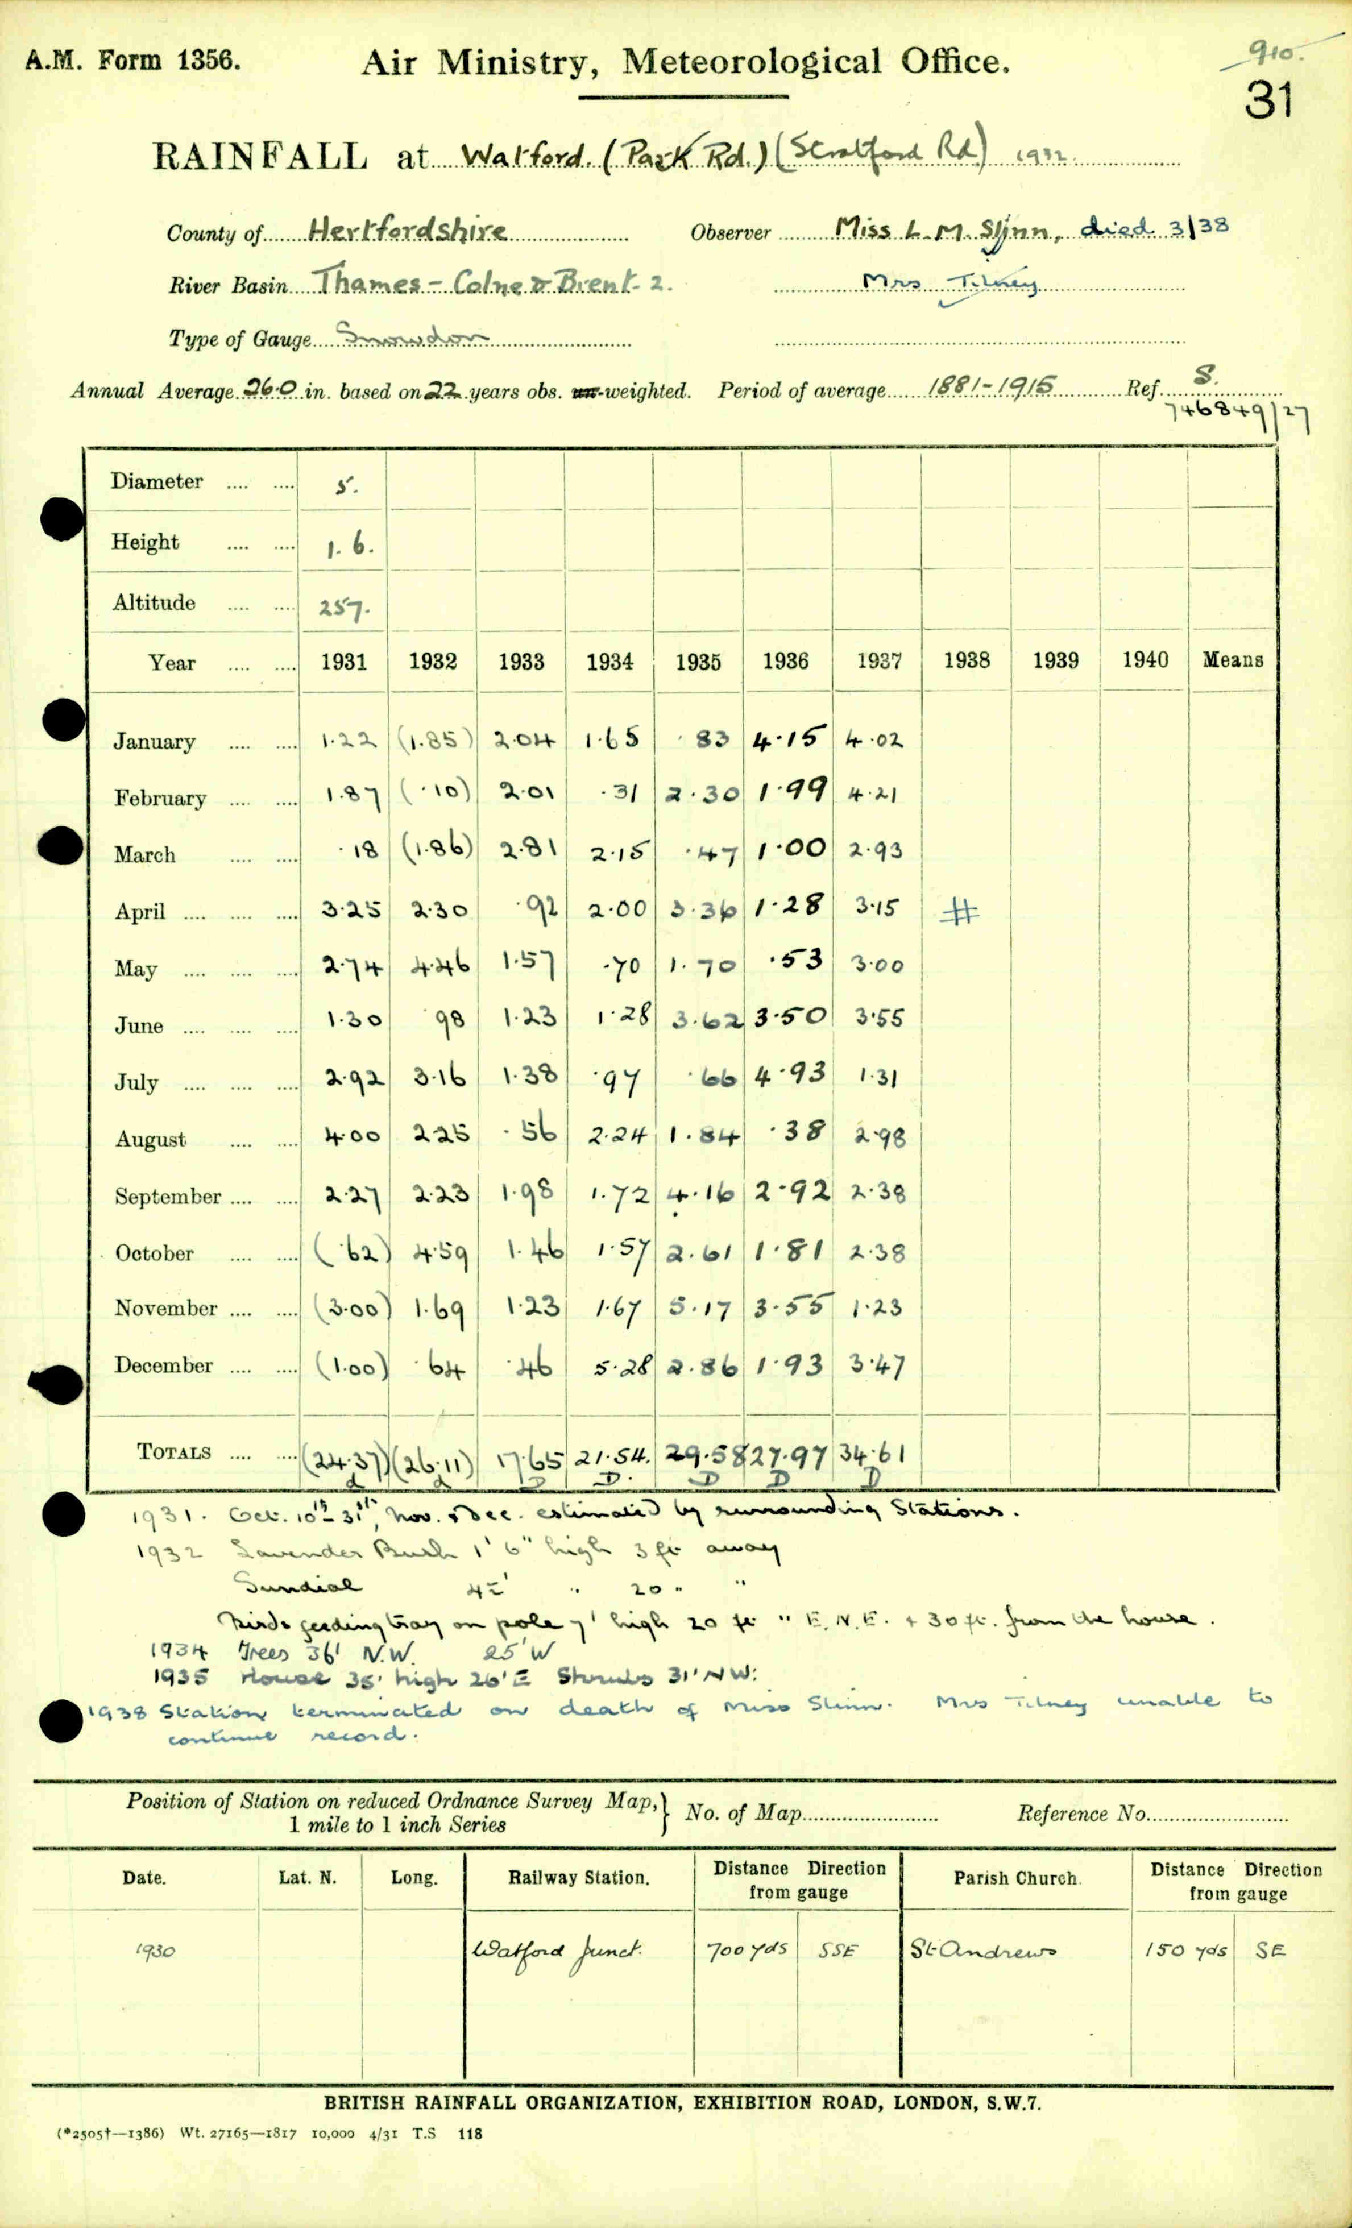 910.
A.M. Form 1356. Air Ministry, Meteorological Office.
31
RAINFALL at Watford. (Park Rd.) (Stratford Rd) 1932.
County of Hertfordshire Observer Miss L. M. Slinn, died 3/38
River Basin Thames - Colne & Brent - 2. Mrs Tilney
Type of Gauge Snowdon
Annual Average 26.0 in. based on 22 years obs. un-weighted. Period of average 1881-1915 Ref. S.
746849/27
Diameter .... .... 5.
Height .... .... 1. 6.
Altitude .... .... 257.
Year .... .... 1931 1932 1933 1934 1935 1936 1937 1938 1939 1940 Means
January .... .... 1.22 (1.85) 2.04 1.65 .83 4.15 4.02
February .... .... 1.87 (.10) 2.01 .31 2.30 1.99 4.21
March .... .... .18 (1.86) 2.81 2.15 .47 1.00 2.93
April .... .... .... 3.25 2.30 .92 2.00 3.36 1.28 3.15 #
May .... .... .... 2.74 4.46 1.57 .70 1.70 .53 3.00
June .... .... .... 1.30 98 1.23 1.28 3.62 3.50 3.55
July .... .... .... 2.92 3.16 1.38 .97 .66 4.93 1.31
August .... .... 4.00 2.25 .56 2.24 1.84 .38 2.98
September .... .... 2.27 2.23 1.98 1.72 4.16 2.92 2.38
October .... .... (.62) 4.59 1.46 1.57 2.61 1.81 2.38
November .... .... (3.00) 1.69 1.23 1.67 5.17 3.55 1.23
December .... .... (1.00) .64 .46 5.28 2.86 1.93 3.47
TOTALS .... .... (24.37) (26.11) 17.65 21.54. 29.58 27.97 34.61
D D D D D
1931. Oct. 10th - 31st, Nov. & Dec. estimated by surrounding Stations.
1932 Lavender Bush 1' 6" high 3 ft away
Sundial 4½' " 20 " "
Birds feeding tray on pole 7' high 20 ft " E.N.E. + 30 ft. from the house.
1934 Trees 36' N.W. 25' W
1935 House 35' high 26' E Shrubs 31' NW.
1938 Station terminated on death of Miss Slinn. Mrs Tilney unable to
continue record.
Position of Station on reduced Ordnance Survey Map,} No. of Map Reference No.
1 mile to 1 inch Series
Date. Lat. N. Long. Railway Station. Distance Direction from gauge Parish Church. Distance Direction from gauge
1930 Watford Junct. 700 yds SSE St Andrews 150 yds SE
BRITISH RAINFALL ORGANIZATION, EXHIBITION ROAD, LONDON, S.W.7.
(*2505†—1386) Wt. 27165—1817 10,000 4/31 T.S 118